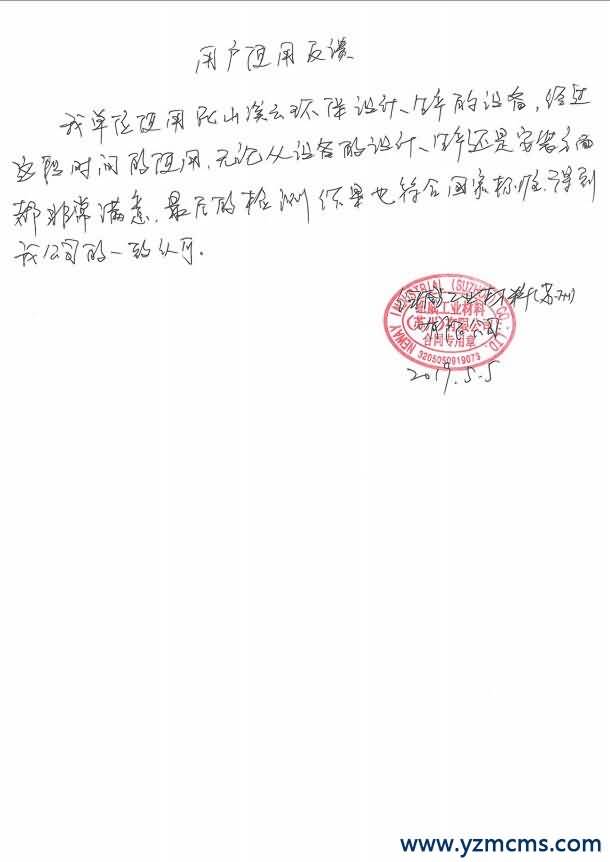 用户使用反馈
我单位使用昆山溪云环保设计、生产的设备,经过
这段时间的使用,无论从设备的设计、生产还是安装方面
都非常满意,最后的检测结果也符合国家标准,得到
我公司的一致认可。
纽威工业材料(苏州)
有限公司
NEWAY INDUSTRIAL (SUZHOU) CO., LTD.
纽威工业材料
(苏州)有限公司
合同专用章
3205050919073
2017.5.5
www.yzmcms.com